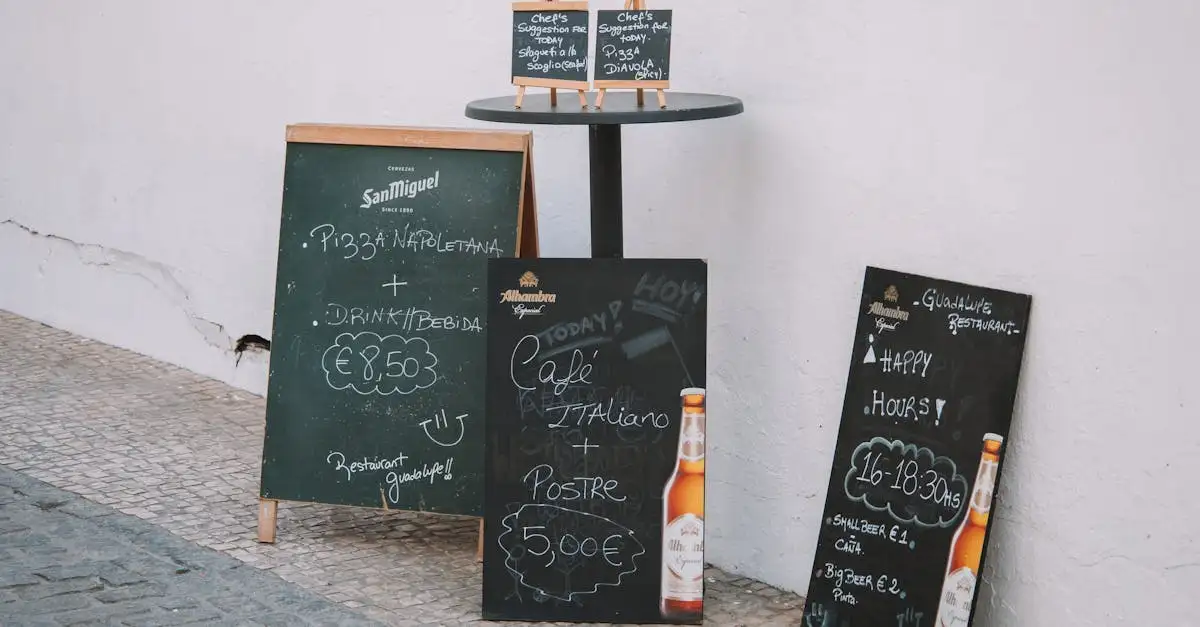 Chef's
Suggestion for
TODAY
Slaguefi a lh
scoglio (seafod)
Chef's
Suggestion for
TODAY.
Pizza
DIAVOLA
(spicy).
CERVEZAS
San Miguel
SINCE 1890
. PIZZA NAPOLETANA
+
. DRINK//BEBIDA
€8,50
Restaurant
guadalupe!!
Alhambra
Especial
HOY!
TODAY!
Café
ITALiano
+
POSTRE
5,00€
Alhambra
Especial
Alhambra
Especial
- GUADALUPE
RESTAURANT -
HAPPY
HOURS!
16-18:30HS
. SMALL BEER €1.
CAÑA.
. BIG BEER €2.
Pinta.